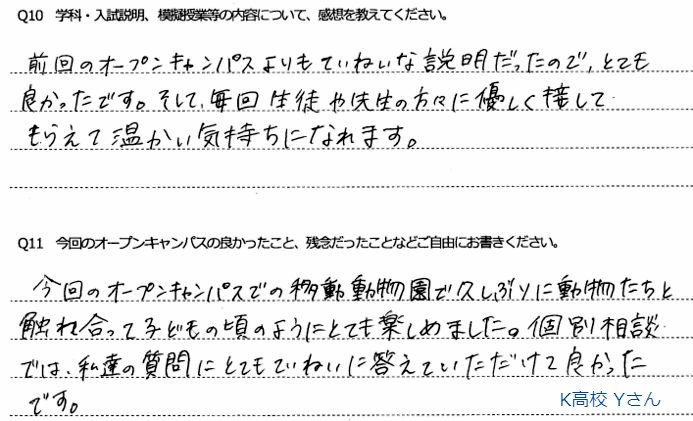 Q10 学科・入試説明、模擬授業等の内容について、感想を教えてください。
前回のオープンキャンパスよりもていねいな説明だったので、とても
良かったです。そして、毎回生徒や先生の方々に優しく接して
もらえて温かい気持ちになれます。
Q11 今回のオープンキャンパスの良かったこと、残念だったことなどご自由にお書きください。
今回のオープンキャンパスでの移動動物園で久しぶりに動物たちと
触れ合って子どもの頃のようにとても楽しめました。個別相談
では、私達の質問にとてもていねいに答えていただけて良かった
です。
K高校 Yさん